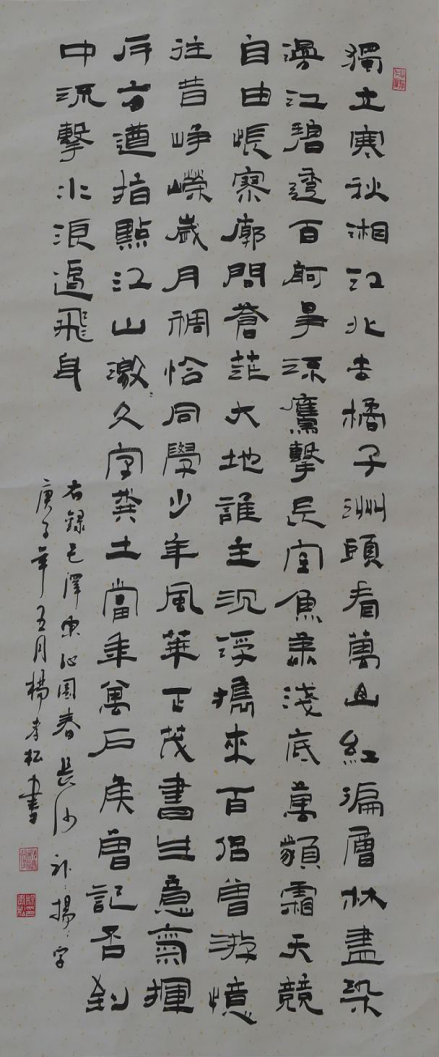 獨立寒秋湘江北去橘子洲頭看萬山紅徧層林盡染
漫江碧透百舸爭流鷹擊長空魚翔淺底萬類霜天競
自由悵寥廓問蒼茫大地誰主沉浮攜來百侶曾游憶
往昔崢嶸歲月稠恰同學少年風華正茂書生意氣揮
斥方遒指點江山激文字糞土當年萬戶侯曾記否到
中流擊水浪遏飛舟
右錄毛澤東沁園春長沙 補揚字
庚子年五月楊孝松書